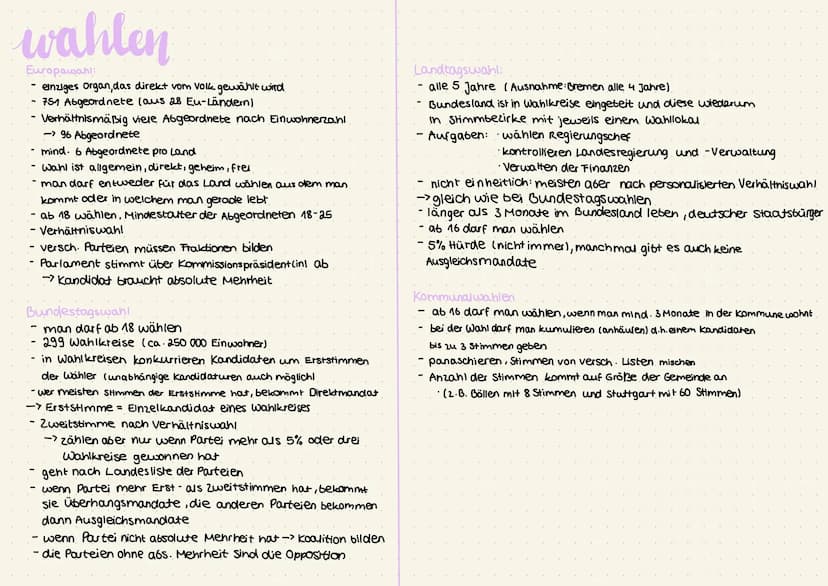 wahlen
Europawahl:
- einziges Organ, das direkt vom Volk gewählt wird
- 751 Abgeordnete (aus 28 Eu-Ländern)
- Verhältnismäßig viele Abgeordnete nach Einwohnerzahl
→ 96 Abgeordnete
- mind. 6 Abgeordnete pro Land
- Wahl ist allgemein, direkt, geheim, frei
- man darf entweder für das Land wählen aus dem man
kommt oder in welchem man gerade lebt
- ab 18 wählen, Mindestalter der Abgeordneten 18-25
- Verhältniswahl
- versch. Parteien müssen Fraktionen bilden
- Parlament stimmt über Kommissionspräsident(in) ab
→ Kandidat braucht absolute Mehrheit
Bundestagswahl
- man darf ab 18 wählen
- 299 Wahlkreise (ca. 250 000 Einwohner)
- in Wahlkreisen konkurrieren Kandidaten um Erststimmen
der Wähler (unabhängige Kandidaturen auch möglich)
- wer meisten Stimmen der Erststimme hat, bekommt Direktmandat
→ Erststimme = Einzelkandidat eines Wahlkreises
- Zweitstimme nach Verhältniswahl
→ zählen aber nur wenn Partei mehr als 5% oder drei
Wahlkreise gewonnen hat
- geht nach Landesliste der Parteien
- wenn Partei mehr Erst- als Zweitstimmen hat, bekommt
sie Überhangsmandate, die anderen Parteien bekommen
dann Ausgleichsmandate
- wenn Partei nicht absolute Mehrheit hat → Koalition bilden
- die Parteien ohne abs. Mehrheit sind die Opposition
Landtagswahl:
- alle 5 Jahre (Ausnahme: Bremen alle 4 Jahre)
- Bundesland ist in Wahlkreise eingeteilt und diese wiederum
in Stimmbezirke mit jeweils einem Wahllokal
- Aufgaben: · wählen Regierungschef
· kontrollieren Landesregierung und -Verwaltung
· Verwalten der Finanzen
- nicht einheitlich: meisten aber nach personalisierten Verhältniswahl
→ gleich wie bei Bundestagswahlen
- länger als 3 Monate im Bundesland leben, deutscher Staatsbürger
- ab 16 darf man wählen
- 5% Hürde (nicht immer), manchmal gibt es auch keine
Ausgleichsmandate
Kommunalwahlen
- ab 16 darf man wählen, wenn man mind. 3 Monate in der Kommune wohnt
- bei der Wahl darf man kumulieren (anhäufen) d.h. einem Kandidaten
bis zu 3 Stimmen geben
- panaschieren, Stimmen von versch. Listen mischen
- Anzahl der Stimmen kommt auf Größe der Gemeinde an
· (z.B. Böllen mit 8 Stimmen und Stuttgart mit 60 Stimmen)